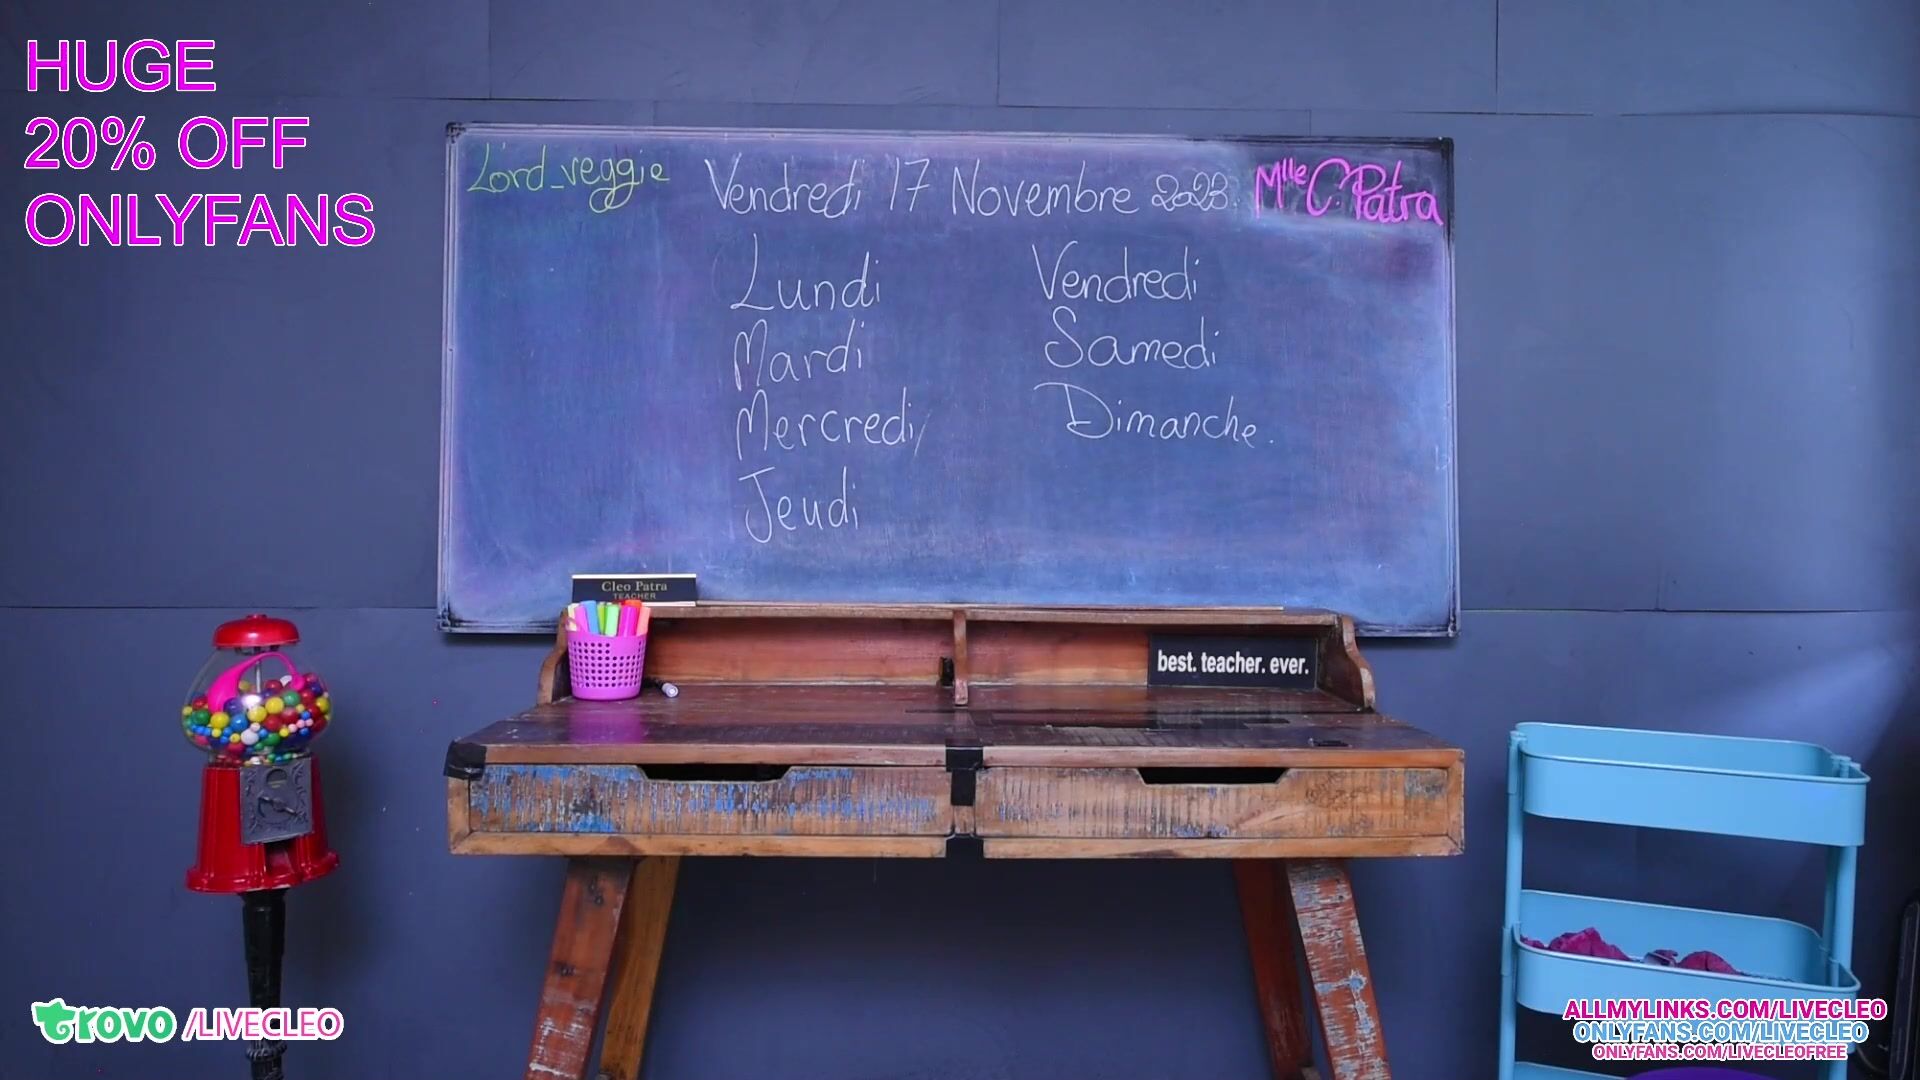 HUGE
20% OFF
ONLYFANS
Lord_veggie
Vendredi 17 Novembre 2023.
Mlle C. Patra
Lundi
Mardi
Mercredi
Jeudi
Vendredi
Samedi
Dimanche.
Cleo Patra
TEACHER
best. teacher. ever.
trovo /LIVECLEO
ALLMYLINKS.COM/LIVECLEO
ONLYFANS.COM/LIVECLEO
ONLYFANS.COM/LIVECLEOFREE